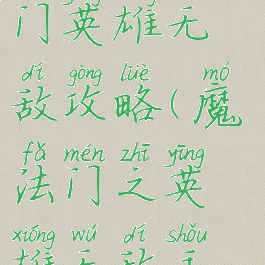 门英雄无
dí gōng lüè mó
敌攻略(魔
fǎ mén zhī yīng
法门之英
xióng wú dí shǒu
雄无敌手